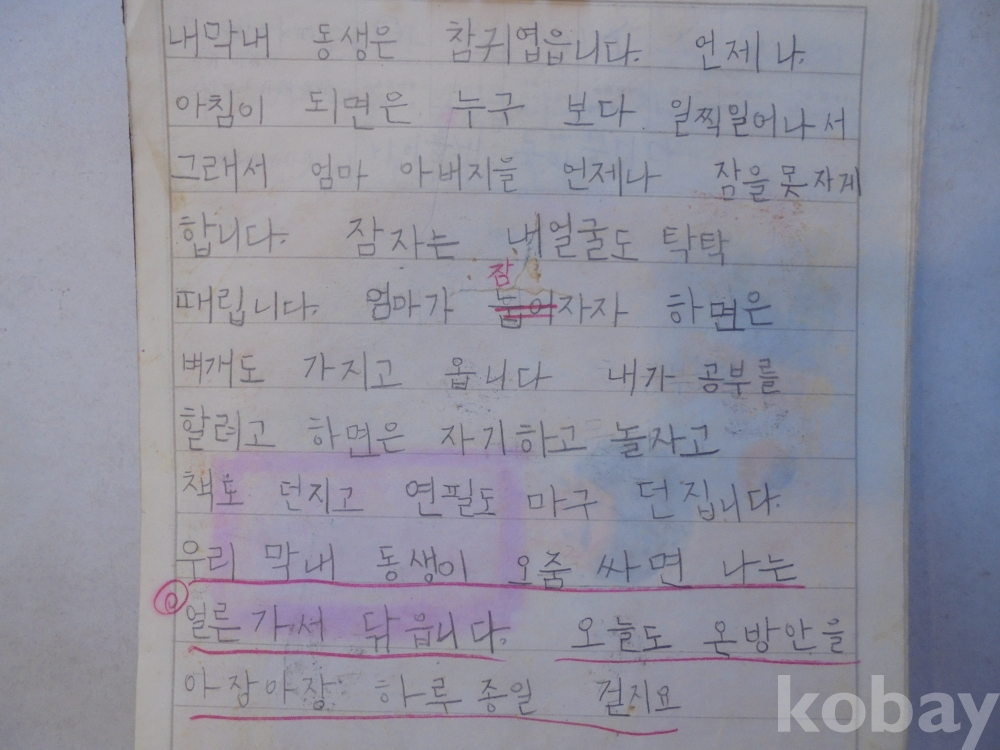 내막내 동생은 참귀엽읍니다. 언제나.
아침이 되면은 누구 보다 일찍일어나서
그래서 엄마 아버지을 언제나 잠을못자게
합니다. 잠자는 내얼굴도 탁탁
잠
때립니다. 엄마가 눕어자자 하면은
벼개도 가지고 옵니다 내가 공부를
할려고 하면은 자기하고 놀자고
책도 던지고 연필도 마구 던집니다.
우리 막내 동생이 오줌 싸면 나는
얼른가서 닦읍니다. 오늘도 온방안을
아장아장 하루종일 걷지요
kobay